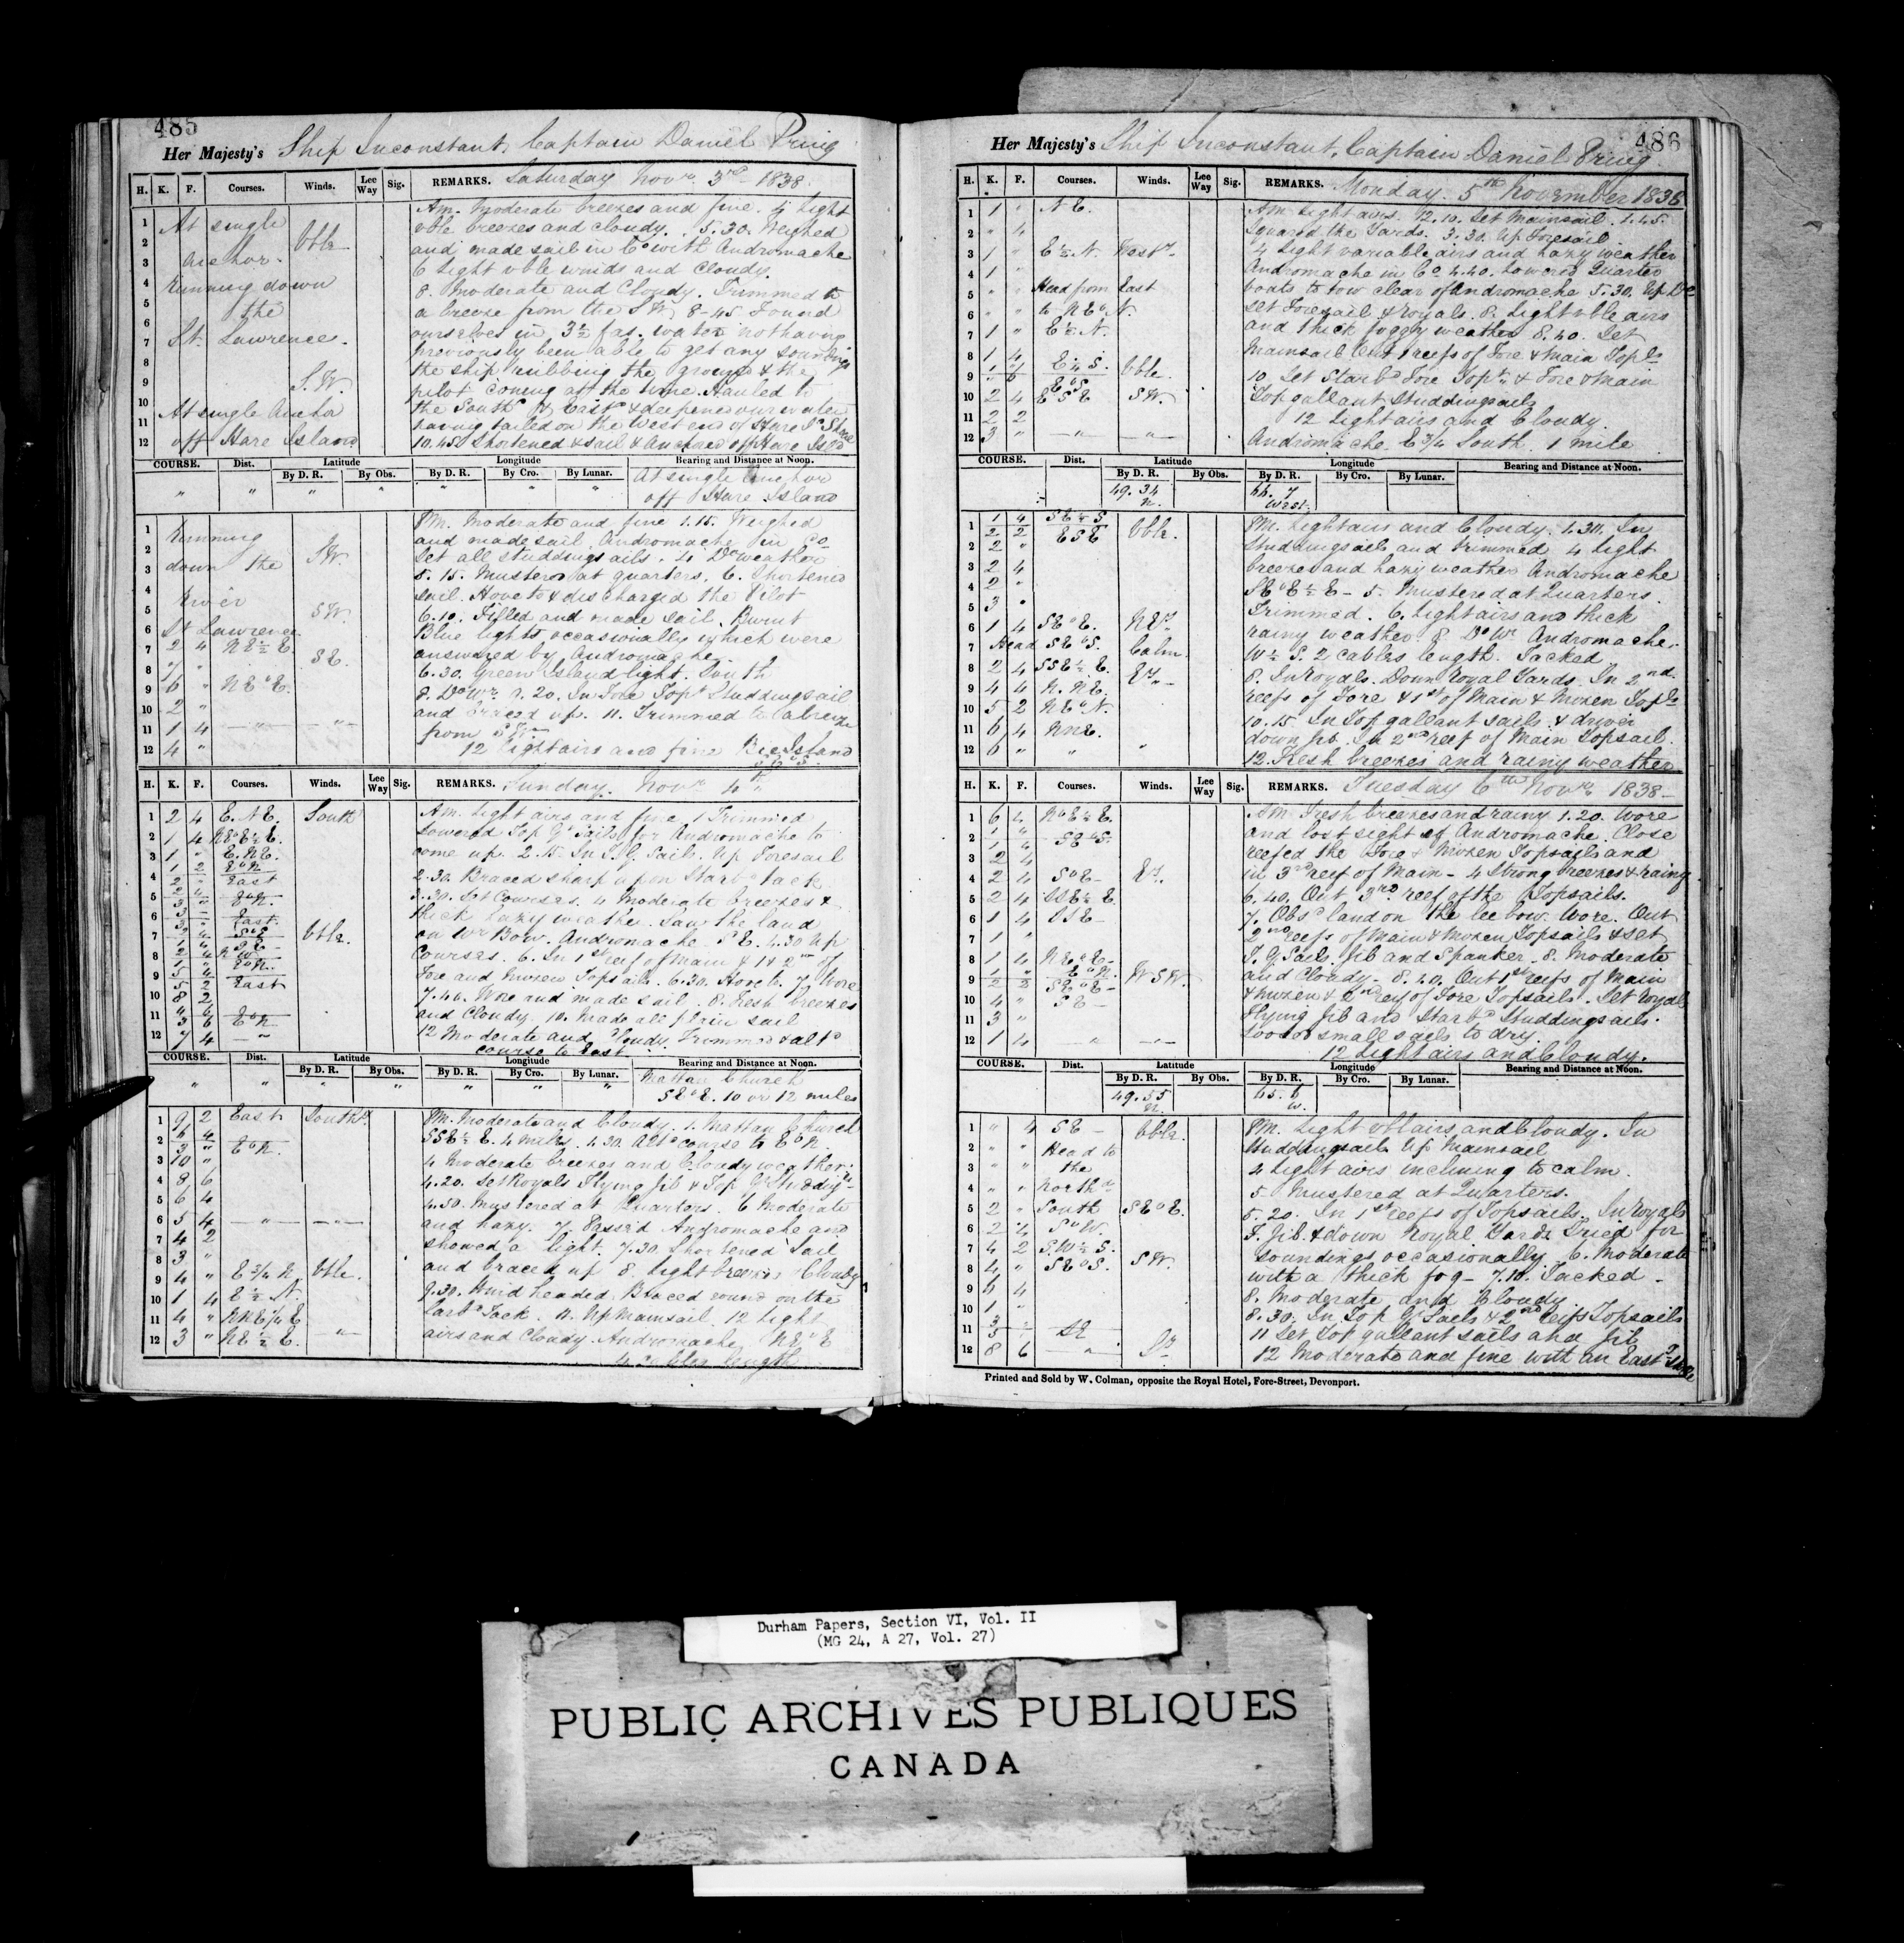 485
Her Majesty's Ship Inconstant, Captain Daniel Pring
H. K. F. Courses. Winds. Lee Way Sig. REMARKS. Saturday Novr. 3rd 1838.
At single
anchor.
Vble
Running down
the
St. Lawrence.
S.W.
At single Anchor
off Hare Island
1
2
3
4
5
6
7
8
9
10
11
12
Am. Moderate breezes and fine. 4 light
vble breezes and cloudy. 5.30. Weighed
and made sail in Co with Andromache
6 light vble winds and cloudy.
8. Moderate and Cloudy. Trimmed to
a breeze from the SW. 8-45 Found
ourselves in 3½ fas. water not having
previously been able to get any soundings
the ship rubbing the ground & the
pilot coming at the time. Hauled to
the South & East & deepened our water
having tailed on the West end of Hare Id Shoal
10.45 Shortened Sail & Anchored off Hare Isld
COURSE. Dist. Latitude Longitude Bearing and Distance at Noon.
By D. R. By Obs. By D. R. By Cro. By Lunar.
" " " " " " "
At single Anchor
off Hare Island
1
2
3
4
5
6
Running
down the
River
St Lawrence.
S.W.
SW.
7 2 4 NE½E.
8 7 " SE.
9 6 " NEbE.
10 2 "
11 1 4 — " — — " —
12 4 "
PM. Moderate and fine 1.15. Weighed
and made sail. Andromache in Co
Set all studdingsails. 4 Do weather
5.15. Mustered at quarters. 6. Shortened
sail. Hove to & discharged the Pilot
6.10. Filled and made sail. Burnt
Blue lights occasionally which were
answered by Andromache.
6.30. Green Island light. South
8. Do Wr. 9.20. In Fore Topt Studdingsail
and braced up. 11. Trimmed to a breeze
from
12 light airs and fine Bic Island
H. K. F. Courses. Winds. Lee Way Sig. REMARKS. Sunday. Novr 4th
1 2 4 E.NE. South
2 1 4 NEbE½E.
3 1 " E.NE.
1 2 EbN
4 2 " East
5 2 4
3 " EbN.
6 3 — E
East
7
Vble.
8
9
5 4 EbN.
5 2 East
10 8 2
11 4 6
3 6 EbN
12 7 4 — "
Am. Light airs and fine. Trimmed
Lowered Top Gt Sails for Andromache to
come up. 2.15. In T.G. Sails. Up Foresail
2.30. Braced sharp up on Starbd tack
3.30. Set Courses. 4 Moderate breezes &
thick hazy weather. Saw the land
on Wr Bow. Andromache SE. 4.30 Up
Courses. 6. In 1st reef of Main & 1 & 2nd of
Fore and Mizen Topsails. 6.30. Hove to. 7 Wore
7.40. Wore and made sail. 8. Fresh breezes
and Cloudy. 10. Made all plain sail
12 Moderate and Cloudy. Trimmed & altd
course to East
COURSE. Dist. Latitude Longitude Bearing and Distance at Noon.
By D. R. By Obs. By D. R. By Cro. By Lunar.
" " " " " " "
Mattan Church
SEbE. 10 or 12 miles
1 9 2 East Southd.
2 4 4
3 " EbN.
3 10 "
4 8 6
5 6 4
6 5 4 — " — — " —
7 4 2
8 3 "
9 4 " E¾N Vble.
10 1 4 E½N.
11 4 " NNE¼E
12 3 " NE½E. — " —
PM. Moderate and Cloudy. 1. Mattan Church
SSE½E. 4 miles. 1.30. Altd course to EbN
4 Moderate breezes and Cloudy weather.
4.20. Set Royals Flying Jib & Top Gt Studdgs
4.50. Mustered at Quarters. 6 Moderate
and hazy. 7. Passed Andromache and
showed a light. 7.30. Shortened Sail
and braced up 8. light breezes Cloudy
9.30. Wind headed. Braced round on the
Larbd Tack. 11. Up Mainsail. 12 light
airs and Cloudy. Andromache NEbE
4 Cables length
486
Her Majesty's Ship Inconstant, Captain Daniel Pring
H. K. F. Courses. Winds. Lee Way Sig. REMARKS. Monday. 5th November 1838
1 1 " NE.
2 " 4
3 1 " E½N. Westr.
4 1 "
5 " " Head from East
6 " " to NEbN.
7 1 " E½N.
8 1 4
9 1 " E¼S. Vble.
" 6 EbS
10 2 4 ESE SW.
11 2 2
12 3 " — " — — " —
Am. Light airs. 12.10. Set Mainsail. 1.45.
Squared the Yards. 3.30. Up Foresail
4 Light variable airs and hazy weather
Andromache in Co 4.40. Lowered Quarter
boats to tow clear of Andromache 5.30. Up Do
Set Foresail & royals. 8. Light vble airs
and thick foggy weather 8.40. Set
Mainsail Out 1 reefs of Fore & Main Topls
10. Set Starbd Fore Topt & Fore & Main
Topgallant Studdingsails
12 Light airs and Cloudy.
Andromache E¾South. 1 mile
COURSE. Dist. Latitude Longitude Bearing and Distance at Noon.
By D. R. By Obs. By D. R. By Cro. By Lunar.
49.34 N.
66.7 West.
1 1 4 SE½S
2 2 ESE Vble.
2 2 "
3 2 4
4 2 "
5 3 "
6 1 4 SEbE. NEr.
7 Head SEbS. Calm.
8 2 4 SSE½E. Er.
9 4 4 N.NE.
10 5 2 NEbN.
11 6 4 NNE.
12 6 " " "
PM. Light airs and Cloudy. 1.30. In
Studdingsails and trimmed 4 light
breezes and hazy weather Andromache
SEbE½E - 5. Mustered at Quarters.
Trimmed. 6. Light airs and thick
rainy weather. 8. Do Wr Andromache.
W½S. 2 cables length. Tacked
8. In Royals. Down Royal Yards. In 2nd.
reefs of Fore & 1st of Main & Mizen Topls
10.15. In Topgallant sails & driver
down Jib. In 2nd reef of Main Topsail.
12. Fresh breezes and rainy weather
H. K. F. Courses. Winds. Lee Way Sig. REMARKS. Tuesday 6th Novr. 1838-
1 6 4 NbE½E.
2 1 "
1 " SEbS.
3 2 4
4 2 4 SbE - Er.
5 2 4 SSE½E.
6 1 4 SSE -
7 1 "
8 1 4 NEbE -
9 1 " EbN. WSW.
2 2 SEbE -
10 4 " SE -
11 3 "
12 1 4 — " — — " —
Am. Fresh breezes and rainy 1.20. Wore
and lost sight of Andromache. Close
reefed the Fore & Mizen Topsails and
in 3rd reef of Main - 4 Strong breezes & rainy
6.40. Out 3rd reef of the Topsails.
7. Obsd land on the lee bow. Wore. Out
2nd reefs of Main & Mizen Topsails & set
T.G. Sails. Jib and Spanker. 8. Moderate
and Cloudy. 8.20. Out 1st reefs of Main
& Mizen & 2nd reef of Fore Topsails. Set royals
Flying Jib and Starbd Studdingsails.
Loosed small sails to dry.
12 Light airs and Cloudy.
COURSE. Dist. Latitude Longitude Bearing and Distance at Noon.
By D. R. By Obs. By D. R. By Cro. By Lunar.
49.55 N.
65.6 W.
1 " 4 SE - Vble.
2 " " Head to
3 " " the
4 " " Northd
5 2 " South SEbE.
6 2 4 SbW.
7 4 2 S.W½S.
8 4 " SEbS. SW.
9 4 4
10 1 "
11 3 -
5 - SE
12 8 6 — " —
PM. Light vble airs, and Cloudy. In
Studdingsails Up Mainsail
4 Light airs inclining to calm.
5 Mustered at Quarters.
5.20. In 1st reefs of Topsails. In Royals
F. Jib & down Royal Yards Tried for
soundings occasionally. 6. Moderate
with a thick fog - 7.10. Tacked -
8. Moderate and Cloudy
8.30. In Top Gt Sails & 2nd reefs Topsails
11 Set Topgallant sails and Jib
12 Moderate and fine with an East
Printed and Sold by W. Colman, opposite the Royal Hotel, Fore-Street, Devonport.
Durham Papers, Section VI, Vol. II
(MG 24, A 27, Vol. 27)
PUBLIC ARCHIVES PUBLIQUES
CANADA